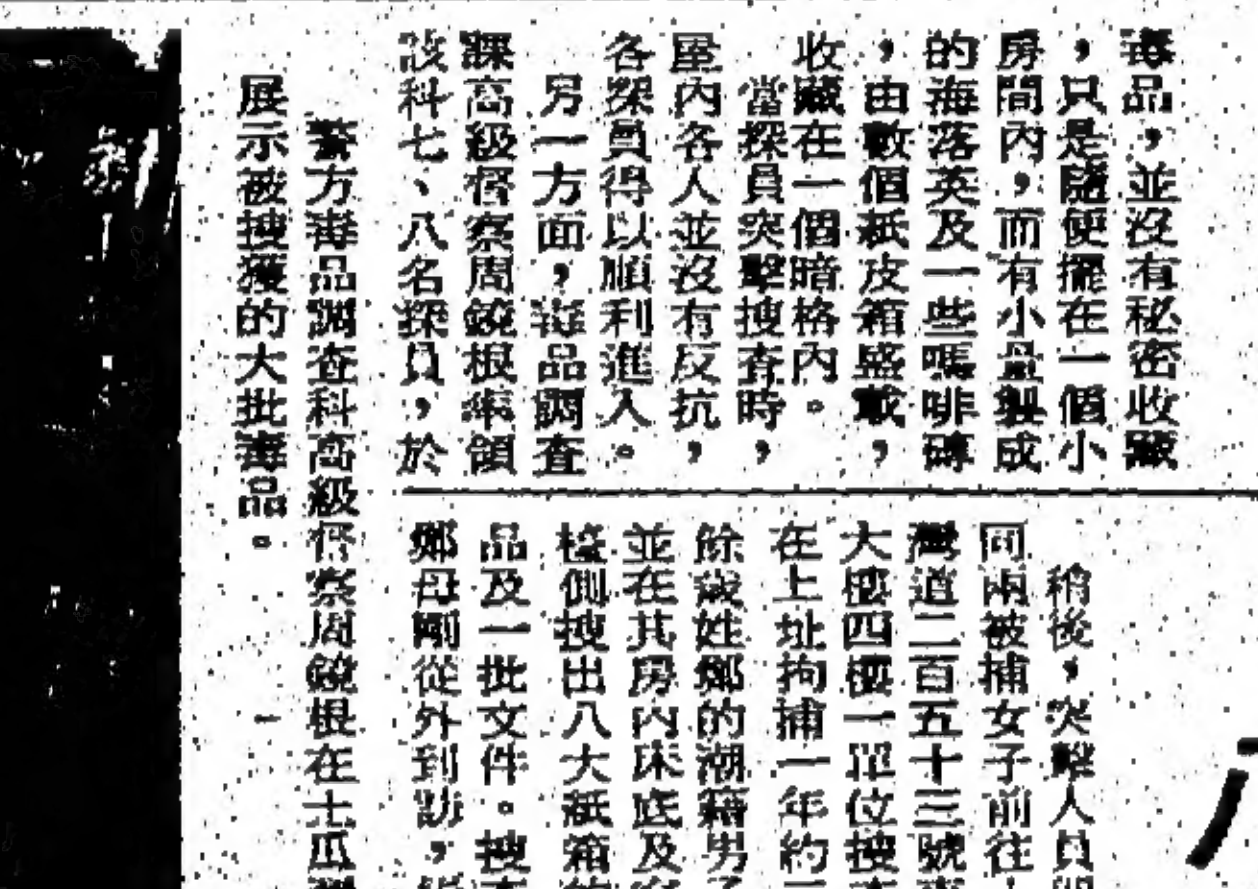 毒品，並沒有秘密收藏
，只是隨便擺在一個小
房間內，而有小量製成
的海落英及一些嗎啡磚
，由數個紙皮箱盛載，
收藏在一個暗格內。
當探員突擊搜查時，
屋內各人並沒有反抗，
各探員得以順利進入。
另一方面，毒品調查
課高級督察周鏡根率領
該科七、八名探員，於
稍後，突擊人員
同兩被捕女子前往
灣道二百五十三號
大樓四樓一單位搜
在上址拘捕一年約
餘歲姓鄭的潮籍男
並在其房內床底及
檯側搜出八大紙箱
品及一批文件。搜
鄭母剛從外到訪，
警方毒品調查科高級督察周鏡根在土瓜灣
展示被搜獲的大批毒品。